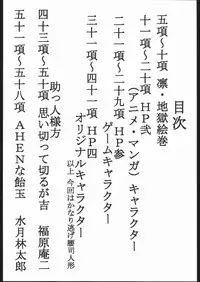 目次
五項〜十項 凛・地獄絵巻
十一項〜二十項 HP弐
(アニメ・マンガ)キャラクター
二十一項〜二十九項 HP参
ゲームキャラクター
三十一項〜四十一項 HP四
オリジナルキャラクター
以上 今回はかなり逃げ腰司人形
助っ人様方
四十三項〜五十項 思い切って切るが吉 福原庵二
五十一項〜五十八項 AHENな飴玉 水月林太郎